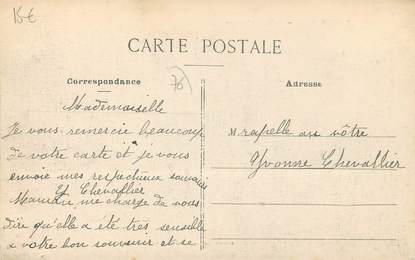 15€
CARTE POSTALE
Correspondance
78
Adresse
Mademoiselle
Je vous remercie beaucoup
de votre carte et je vous
envoie mes respectueux souvenirs
Chevallier
Maman me charge de vous
dire qu'elle a été très sensible
a votre bon souvenir et se
rapelle au vôtre
Yvonne Chevallier